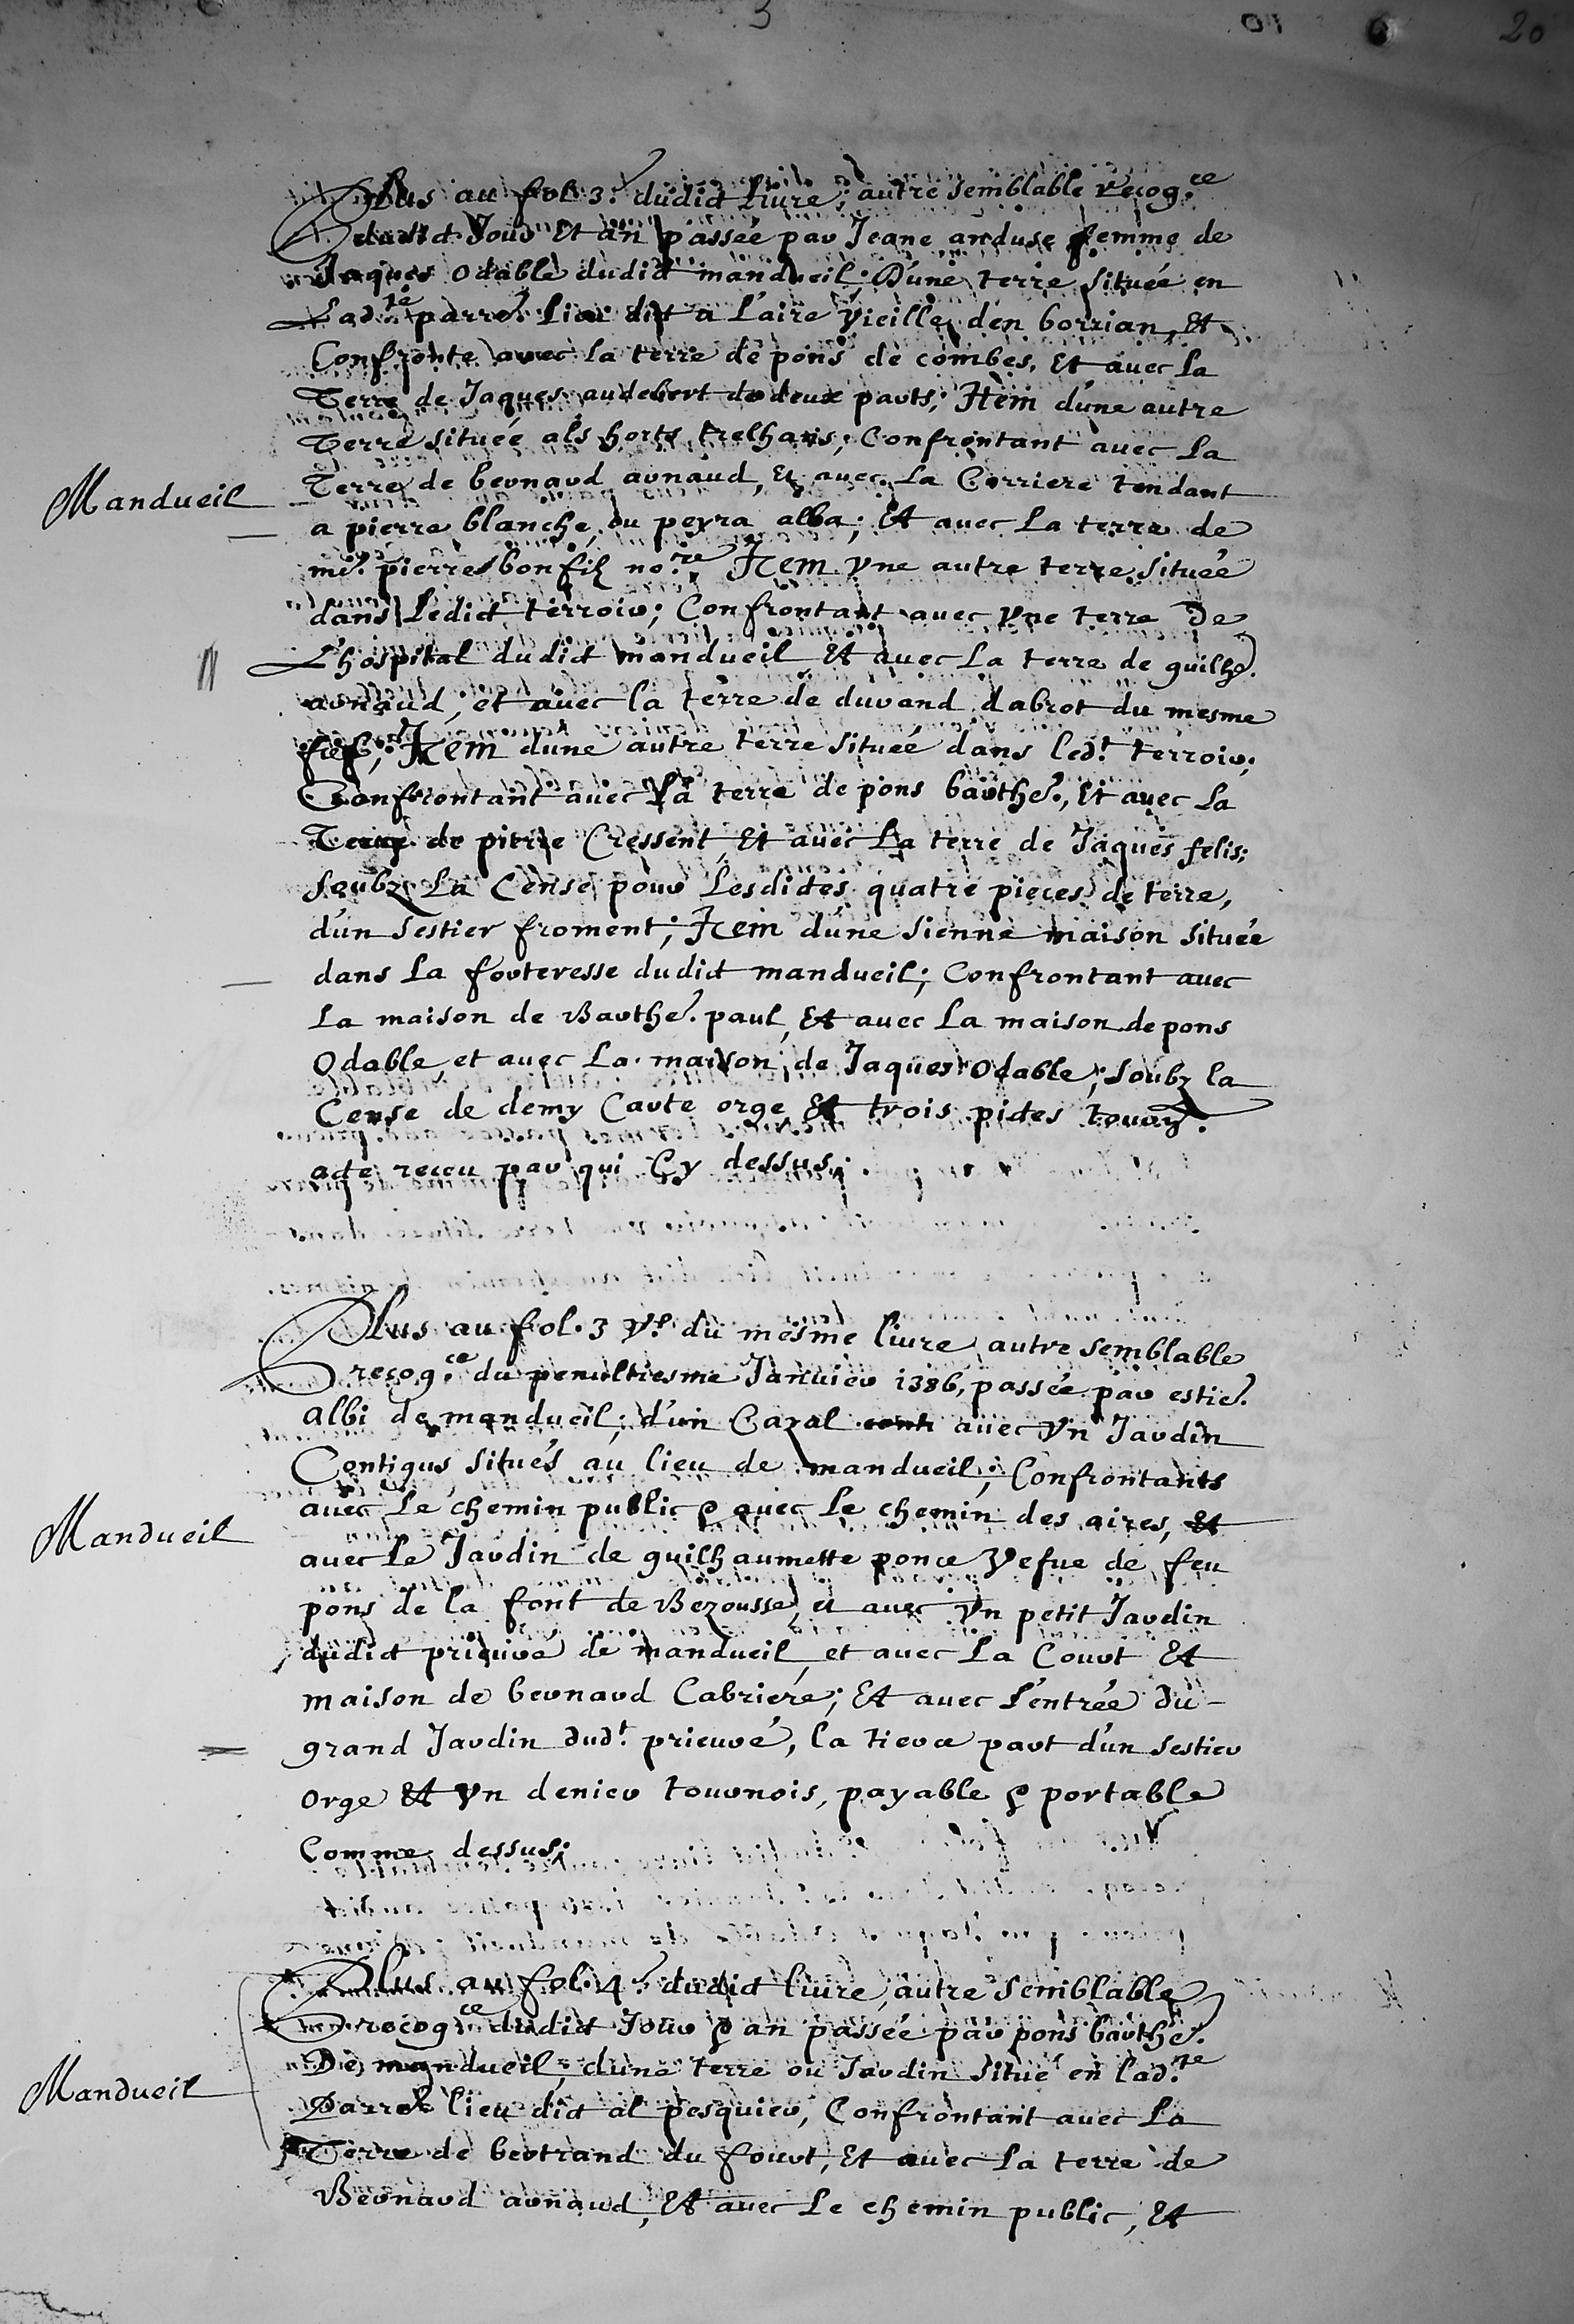 20
Plus au fol. 3.e dudict liure, autre semblable recog.ce
dudict Jour et an passée par Jeane anduse femme de
Jaques Odable dudict mandueil; D'une terre située en
Lad.te parre. lieu dit a L'aire vieille d'en borrian, Et
Confronte avec la terre de pons de combes, Et avec La
Terre de Jaques audebert de deux parts; Item d'une autre
Terre située als horts trelhans; Confrontant avec La
Terre de bernard arnaud, Et avec La Carriere tendant
Mandueil
a pierre blanche, ou peyra alba; Et avec La terre de
me. pierre bonfilz no.re, Item vne autre terre située
dans Ledict terroir; Confrontant avec vne terre De
L'hospital dudict mandueil Et avec La terre de guilhe.
arnaud, et avec la terre de durand dabrot du mesme
fief; Item d'une autre terre située dans led.t terroir;
Confrontant avec La terre de pons barthe., Et avec La
Terre de pierre Cressent, Et avec La terre de Jaques felis;
soubz La Cense pour Lesdites quatre pieces de terre,
d'un sestier froment; Item d'une sienne maison située
dans La forteresse dudict mandueil; Confrontant avec
La maison de Barthe. paul, Et avec La maison de pons
Odable, et avec La maison de Jaques Odable; soubz la
Cense de demy Carte orge Et trois pites tourn.
acte receu par qui Cy dessus;
Plus au fol. 3 v.o du mesme liure autre semblable
recog.ce du penultiesme Januier 1386, passée par estie.
albi de mandueil; d'un Cazal avec vn Jardin
Contigus situés au lieu de mandueil; Confrontants
avec Le chemin public & avec Le chemin des aires, Et
Mandueil
avec Le Jardin de guilhaumette ponce vefue de feu
pons de la font de Bezousse, et avec vn petit Jardin
dudict prieuré de mandueil, et avec La Court Et
maison de bernard Cabriere; Et avec L'entrée du
grand Jardin dud.t prieuré, la tierce part d'un sestier
orge Et vn denier tournois, payable & portable
Comme dessus;
Plus au fol. 4.e dudict liure, autre semblable
recog.ce dudict Jour & an passée par pons barthe.
De mandueil, d'une terre ou Jardin situé en lad.te
Mandueil
Parre. lieu dict al pesquier, Confrontant avec La
Terre de bertrand du fourt, Et avec La terre de
Bernard arnaud, Et avec Le chemin public, Et